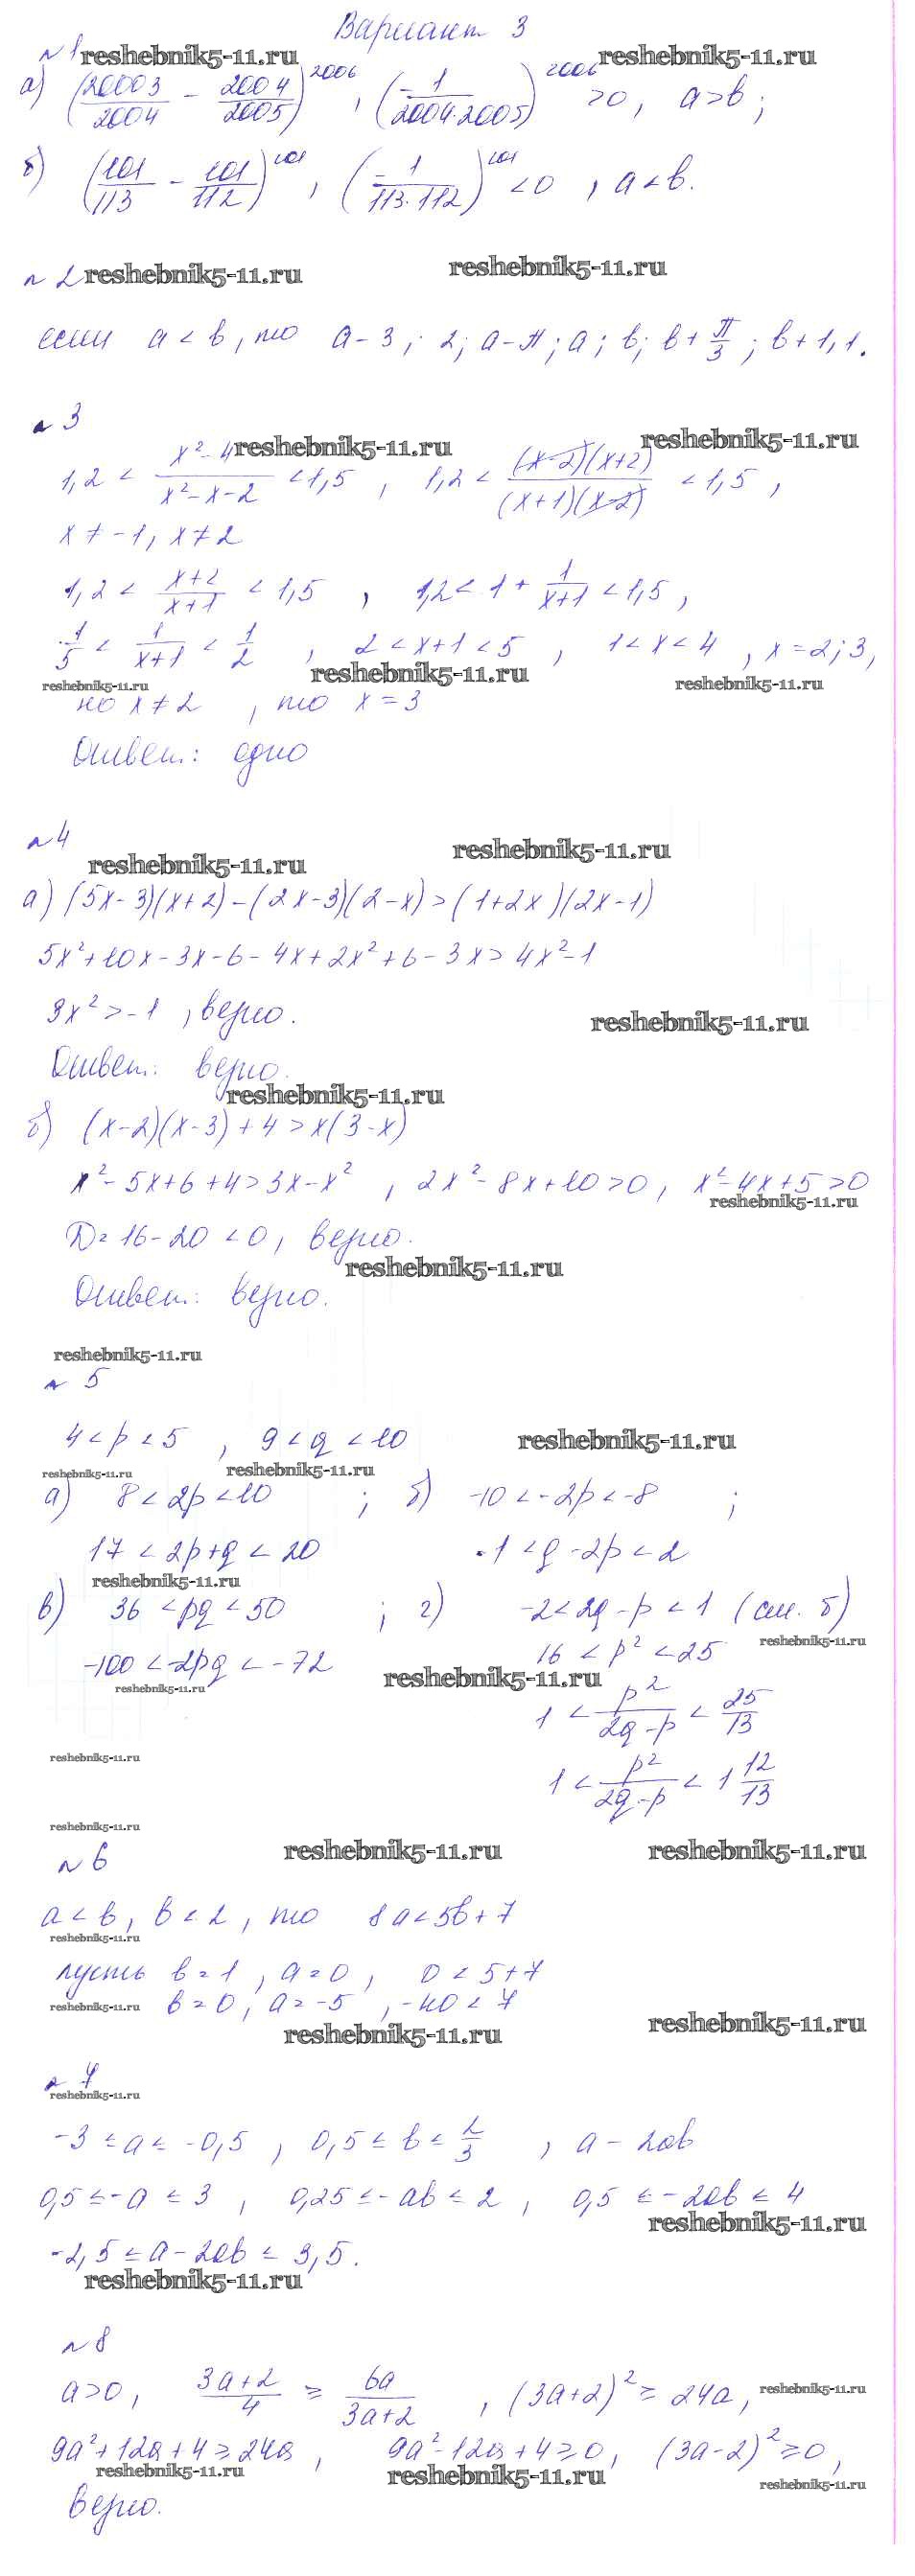 Вариант 3
№1 reshebnik5-11.ru reshebnik5-11.ru
а) (20003/2004 - 2004/2005)^2006, (-1/(2004·2005))^2006 > 0, a > b;
б) (101/113 - 101/112)^101, (-1/(113·112))^101 < 0, a < b.
№2 reshebnik5-11.ru reshebnik5-11.ru
если a < b, то a - 3; 2; a - π; a; b; b + π/3; b + 1,1.
№3
reshebnik5-11.ru reshebnik5-11.ru
1,2 < (x² - 4)/(x² - x - 2) < 1,5, 1,2 < ((x-2)(x+2))/((x+1)(x-2)) < 1,5,
x ≠ -1, x ≠ 2
1,2 < (x+2)/(x+1) < 1,5, 1,2 < 1 + 1/(x+1) < 1,5,
1/5 < 1/(x+1) < 1/2, 2 < x+1 < 5, 1 < x < 4, x = 2; 3,
reshebnik5-11.ru reshebnik5-11.ru reshebnik5-11.ru
но x ≠ 2, то x = 3
Ответ: одно
№4
reshebnik5-11.ru reshebnik5-11.ru
а) (5x-3)(x+2) - (2x-3)(2-x) > (1+2x)(2x-1)
5x² + 10x - 3x - 6 - 4x + 2x² + 6 - 3x > 4x² - 1
3x² > -1, верно.
reshebnik5-11.ru
Ответ: верно.
reshebnik5-11.ru
б) (x-2)(x-3) + 4 > x(3-x)
x² - 5x + 6 + 4 > 3x - x², 2x² - 8x + 10 > 0, x² - 4x + 5 > 0
reshebnik5-11.ru
D = 16 - 20 < 0, верно.
reshebnik5-11.ru
Ответ: верно.
reshebnik5-11.ru
№5
4 < p < 5, 9 < q < 10
reshebnik5-11.ru
reshebnik5-11.ru reshebnik5-11.ru
а) 8 < 2p < 10; б) -10 < -2p < -8;
17 < 2p+q < 20 -1 < q - 2p < 2
reshebnik5-11.ru
в) 36 < pq < 50; г) -2 < 2q - p < 1 (см. б)
reshebnik5-11.ru
-100 < -2pq < -72 16 < p² < 25
reshebnik5-11.ru reshebnik5-11.ru
1 < p²/(2q-p) < 25/13
reshebnik5-11.ru
1 < p²/(2q-p) < 1 12/13
reshebnik5-11.ru
№6 reshebnik5-11.ru reshebnik5-11.ru
a < b, b < 2, то 8a < 5b + 7
reshebnik5-11.ru
пусть b = 1, a = 0, 0 < 5+7
reshebnik5-11.ru b = 0, a = -5, -40 < 7
reshebnik5-11.ru reshebnik5-11.ru
№7
reshebnik5-11.ru
-3 ≤ a ≤ -0,5, 0,5 ≤ b ≤ 2/3, a - 2ab
0,5 ≤ -a ≤ 3, 0,25 ≤ -ab ≤ 2, 0,5 ≤ -2ab ≤ 4
reshebnik5-11.ru
-2,5 ≤ a - 2ab ≤ 3,5.
reshebnik5-11.ru
№8
a > 0, (3a+2)/4 ≥ 6a/(3a+2), (3a+2)² ≥ 24a,
reshebnik5-11.ru
9a² + 12a + 4 ≥ 24a, 9a² - 12a + 4 ≥ 0, (3a-2)² ≥ 0,
reshebnik5-11.ru reshebnik5-11.ru reshebnik5-11.ru
верно.